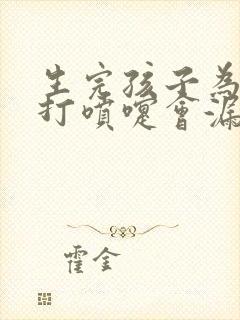 生完孩子為
打噴嚏會漏
霍金